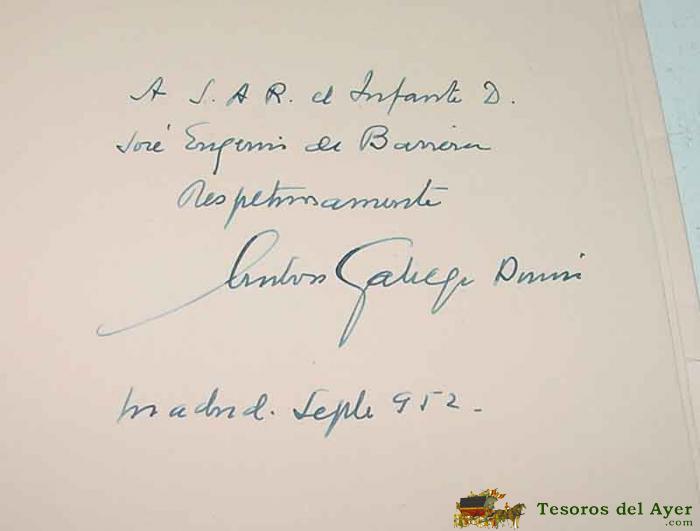 A S. A R. el Infante D.
José Eugenio de Baviera
Respetuosamente
Antonio Gallego Burín
Madrid. Septe 952-
Tesoros del Ayer
.com